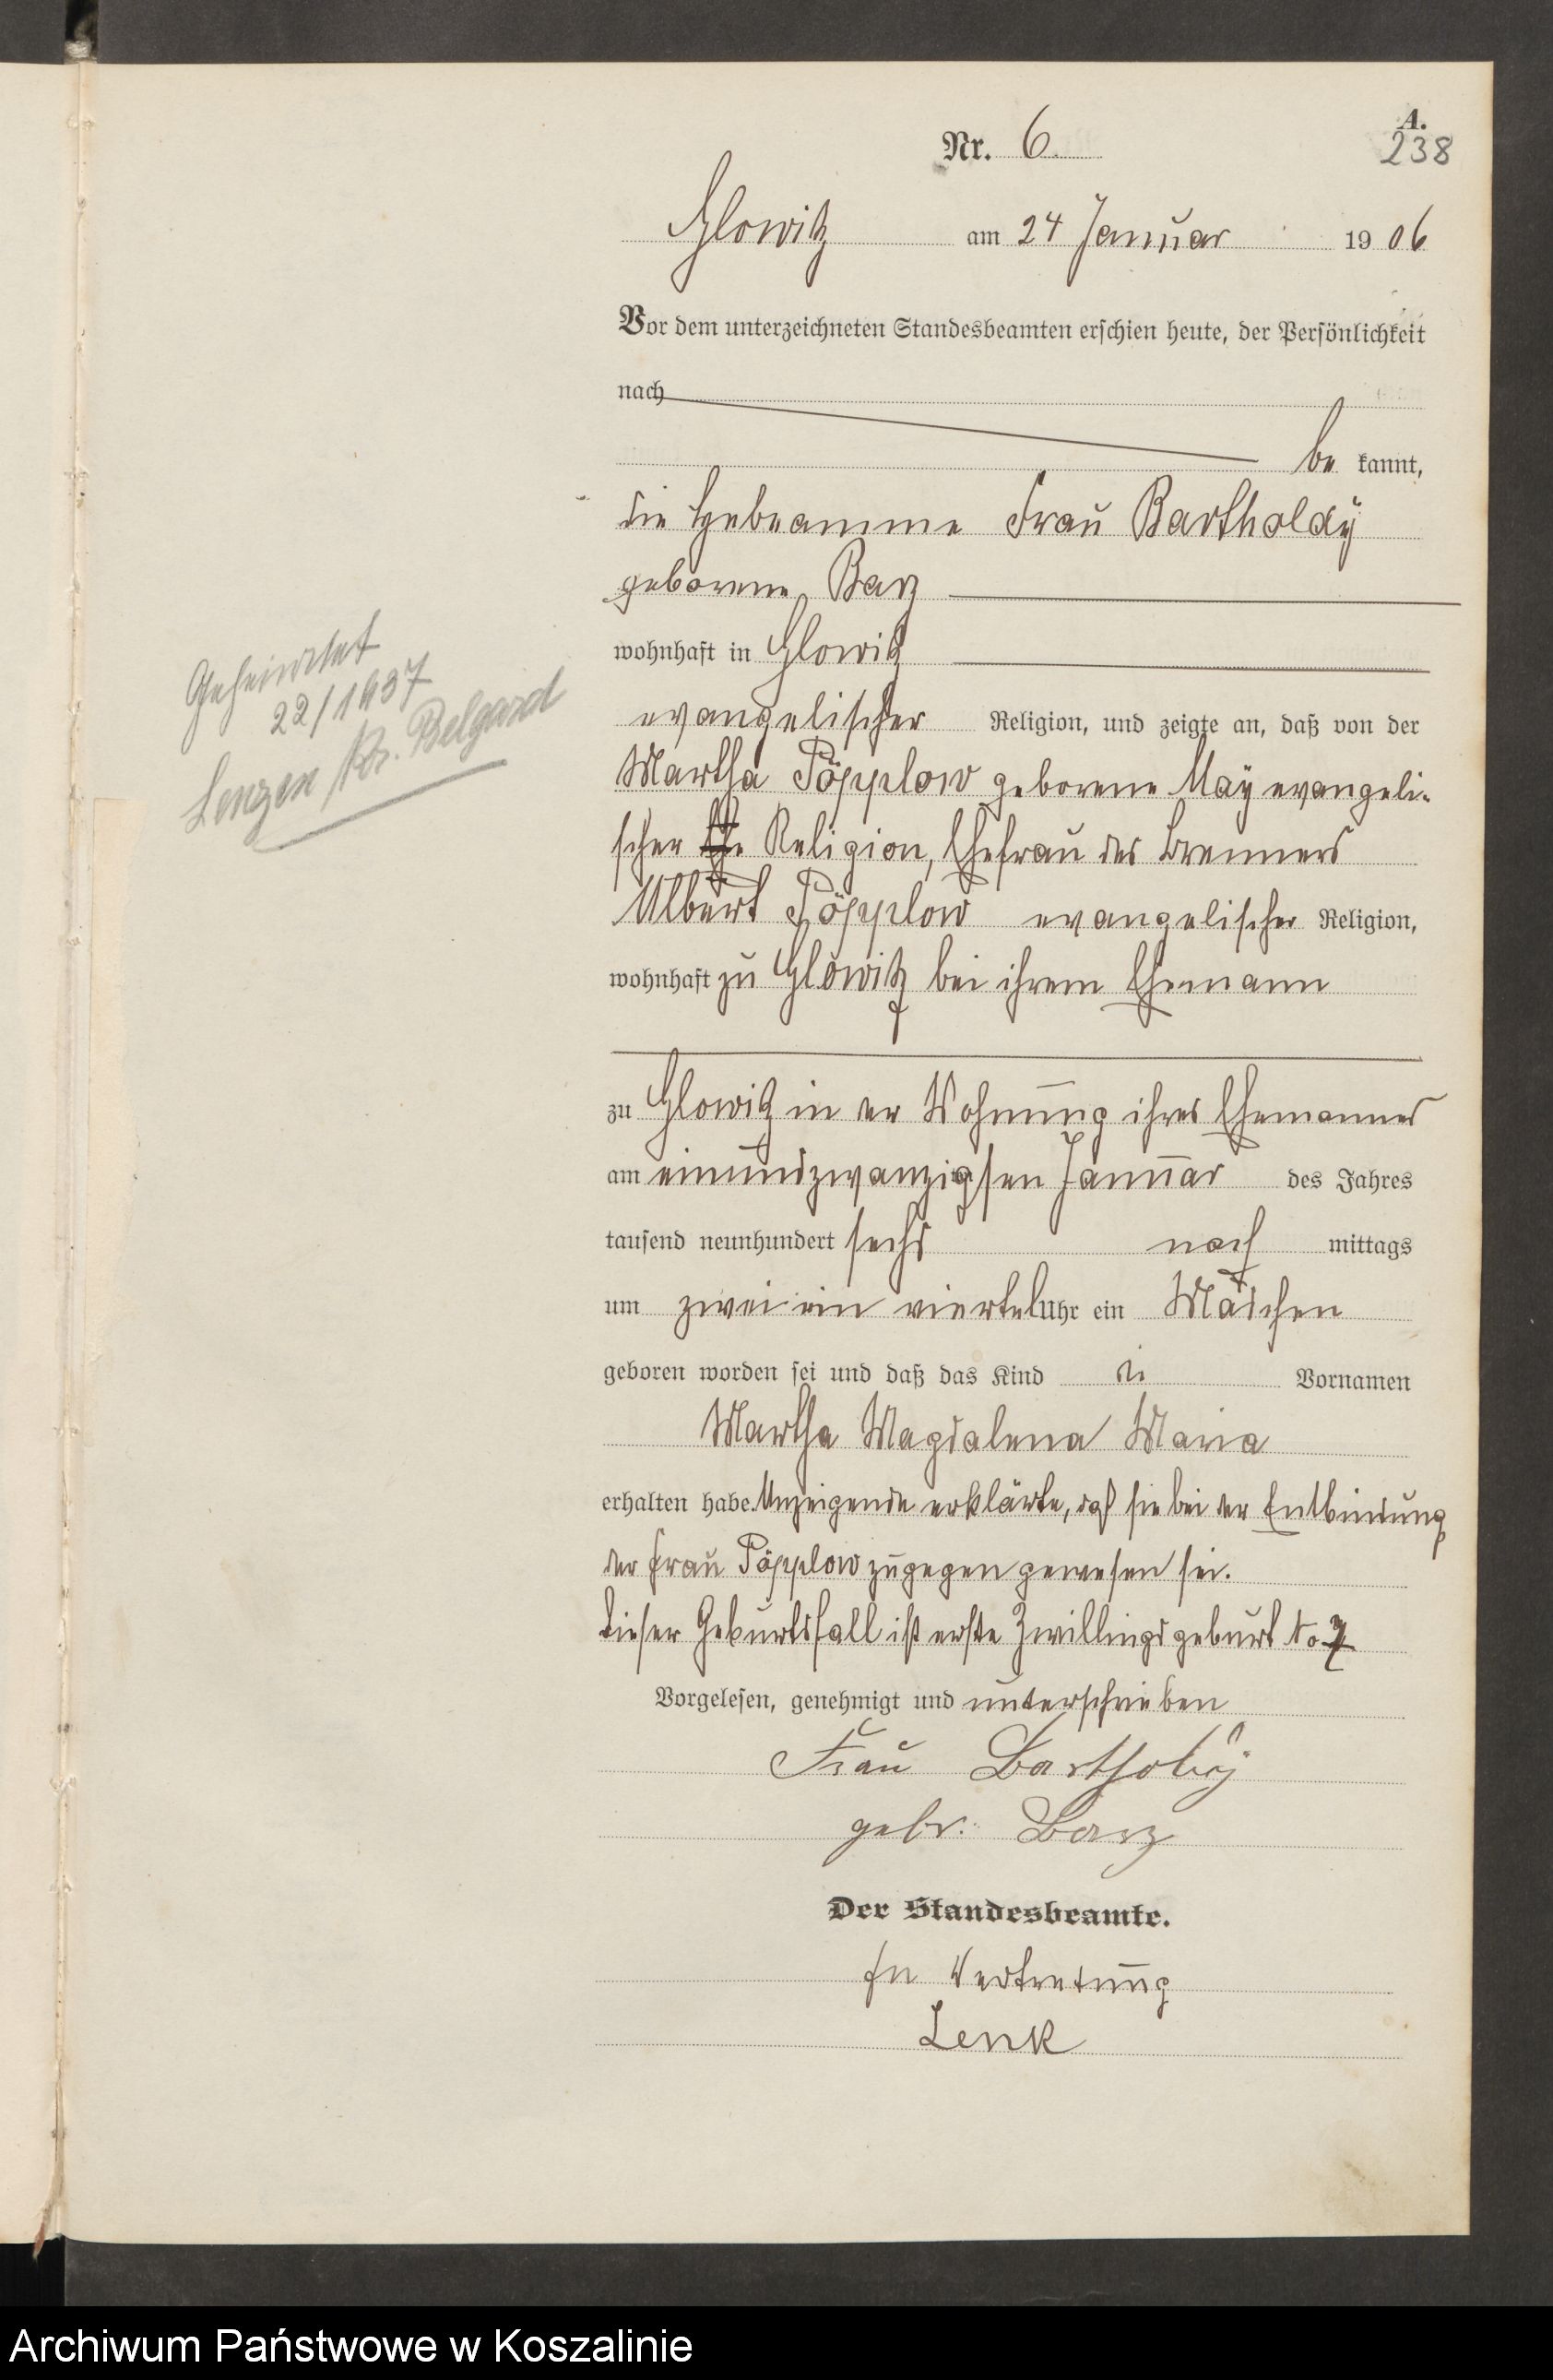 A.
Nr. 6.
238
Glowitz am 24 Januar 1906
Vor dem unterzeichneten Standesbeamten erschien heute, der Persönlichkeit
nach
be kannt,
die Hebeamme Frau Bartholdÿ
geborene Barz
wohnhaft in Glowitz
evangelischer Religion, und zeigte an, daß von der
Martha Pöpplow geborene Maÿ evangeli-
scher Religion, Ehefrau des Brenners
Albert Pöpplow evangelischer Religion,
wohnhaft zu Glowitz bei ihrem Ehemann
Geheiratet
22/1937
Lenzen Kr. Belgard
zu Glowitz in der Wohnung ihres Ehemannes
am einundzwanzigsten Januar des Jahres
tausend neunhundert sechs nach mittags
um zwei ein viertel Uhr ein Mädchen
geboren worden sei und daß das Kind die Vornamen
Martha Magdalena Maria
erhalten habe. Anzeigende erklärte, daß sie bei der Entbindung
der Frau Pöpplow zugegen gewesen sei.
Dieser Geburtsfall ist erste Zwillingsgeburt No 7
Vorgelesen, genehmigt und unterschrieben
Frau Bartholdÿ
gebr. Barz
Der Standesbeamte.
In Vertretung
Lenk
Archiwum Państwowe w Koszalinie